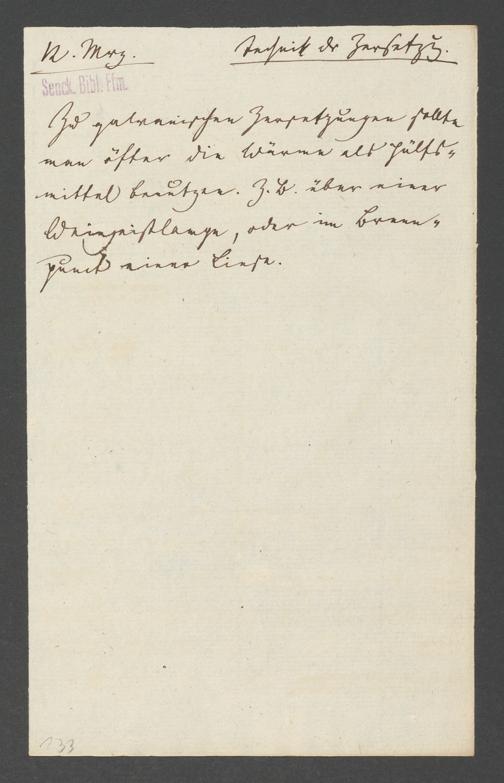 12. Mrz. Technik dr Zersetzg.
Senck. Bibl. Ffm.
Zu galvanischen Zersetzungen sollte
man öfter die Wärme als Hülfs-
mittel benutzen. Z. B. über einer
Weingeistlampe, oder im Brenn-
punct einer Linse.
133